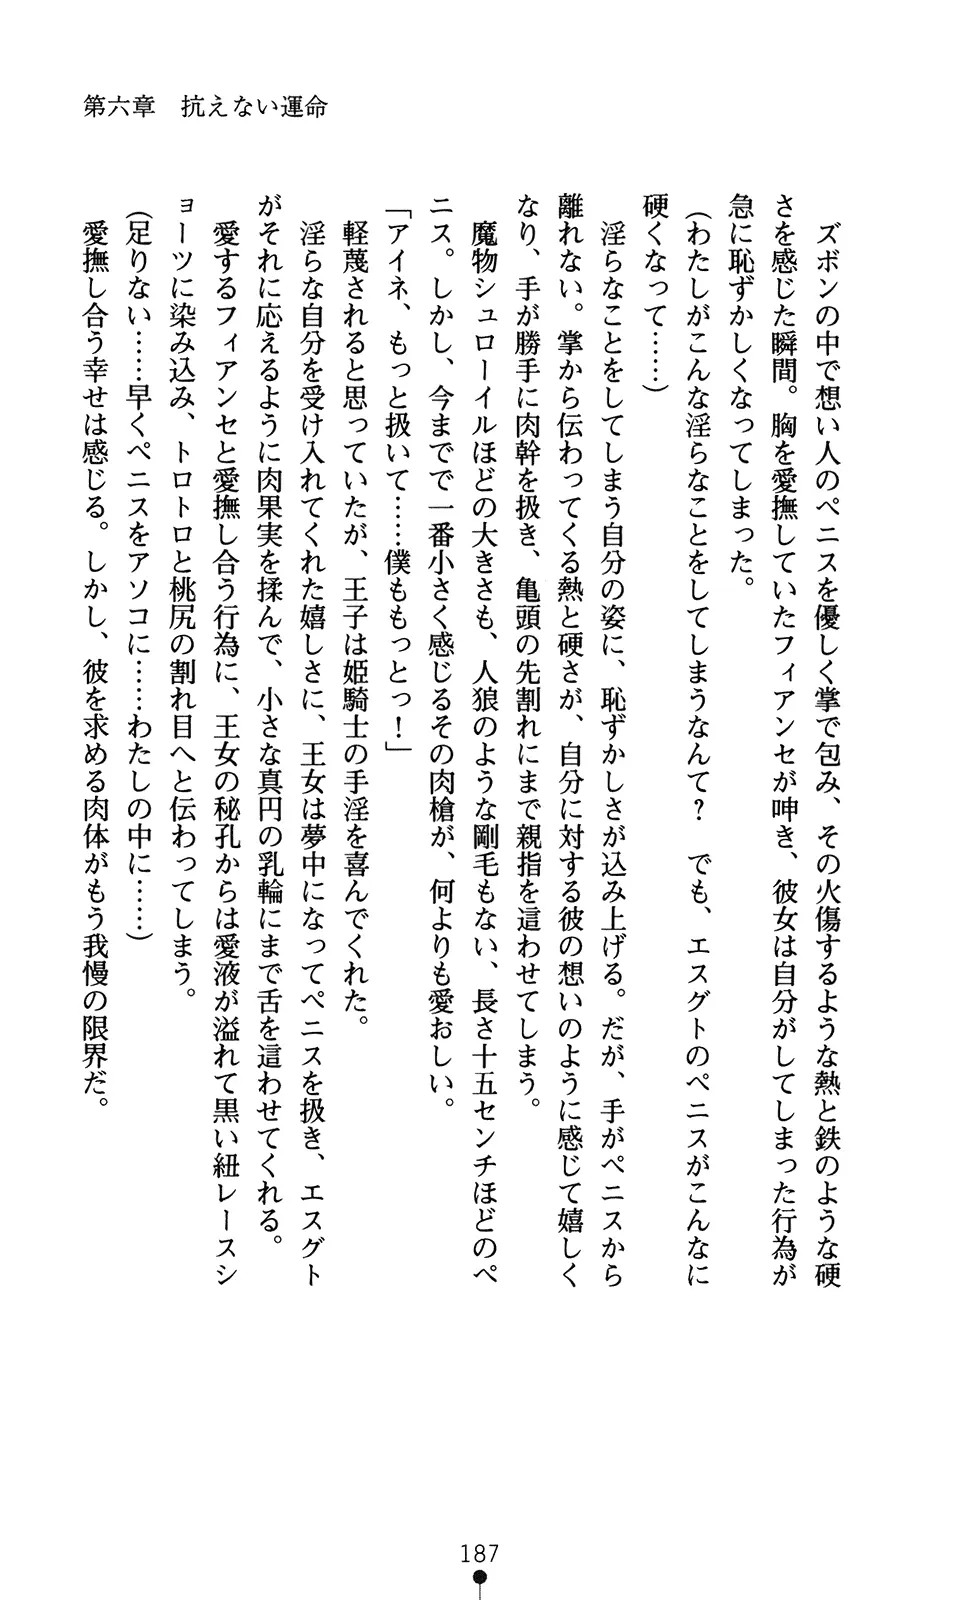 第六章　抗えない運命
　ズボンの中で想い人のペニスを優しく掌で包み、その火傷するような熱と鉄のような硬
さを感じた瞬間。胸を愛撫していたフィアンセが呻き、彼女は自分がしてしまった行為が
急に恥ずかしくなってしまった。
（わたしがこんな淫らなことをしてしまうなんて？　でも、エスグトのペニスがこんなに
硬くなって……）
　淫らなことをしてしまう自分の姿に、恥ずかしさが込み上げる。だが、手がペニスから
離れない。掌から伝わってくる熱と硬さが、自分に対する彼の想いのように感じて嬉しく
なり、手が勝手に肉幹を扱き、亀頭の先割れにまで親指を這わせてしまう。
　魔物シュローイルほどの大きさも、人狼のような剛毛もない、長さ十五センチほどのペ
ニス。しかし、今までで一番小さく感じるその肉槍が、何よりも愛おしい。
「アイネ、もっと扱いて……僕ももっとっ！」
　軽蔑されると思っていたが、王子は姫騎士の手淫を喜んでくれた。
　淫らな自分を受け入れてくれた嬉しさに、王女は夢中になってペニスを扱き、エスグト
がそれに応えるように肉果実を揉んで、小さな真円の乳輪にまで舌を這わせてくれる。
　愛するフィアンセと愛撫し合う行為に、王女の秘孔からは愛液が溢れて黒い紐レースシ
ョーツに染み込み、トロトロと桃尻の割れ目へと伝わってしまう。
（足りない……早くペニスをアソコに……わたしの中に……）
　愛撫し合う幸せは感じる。しかし、彼を求める肉体がもう我慢の限界だ。
187